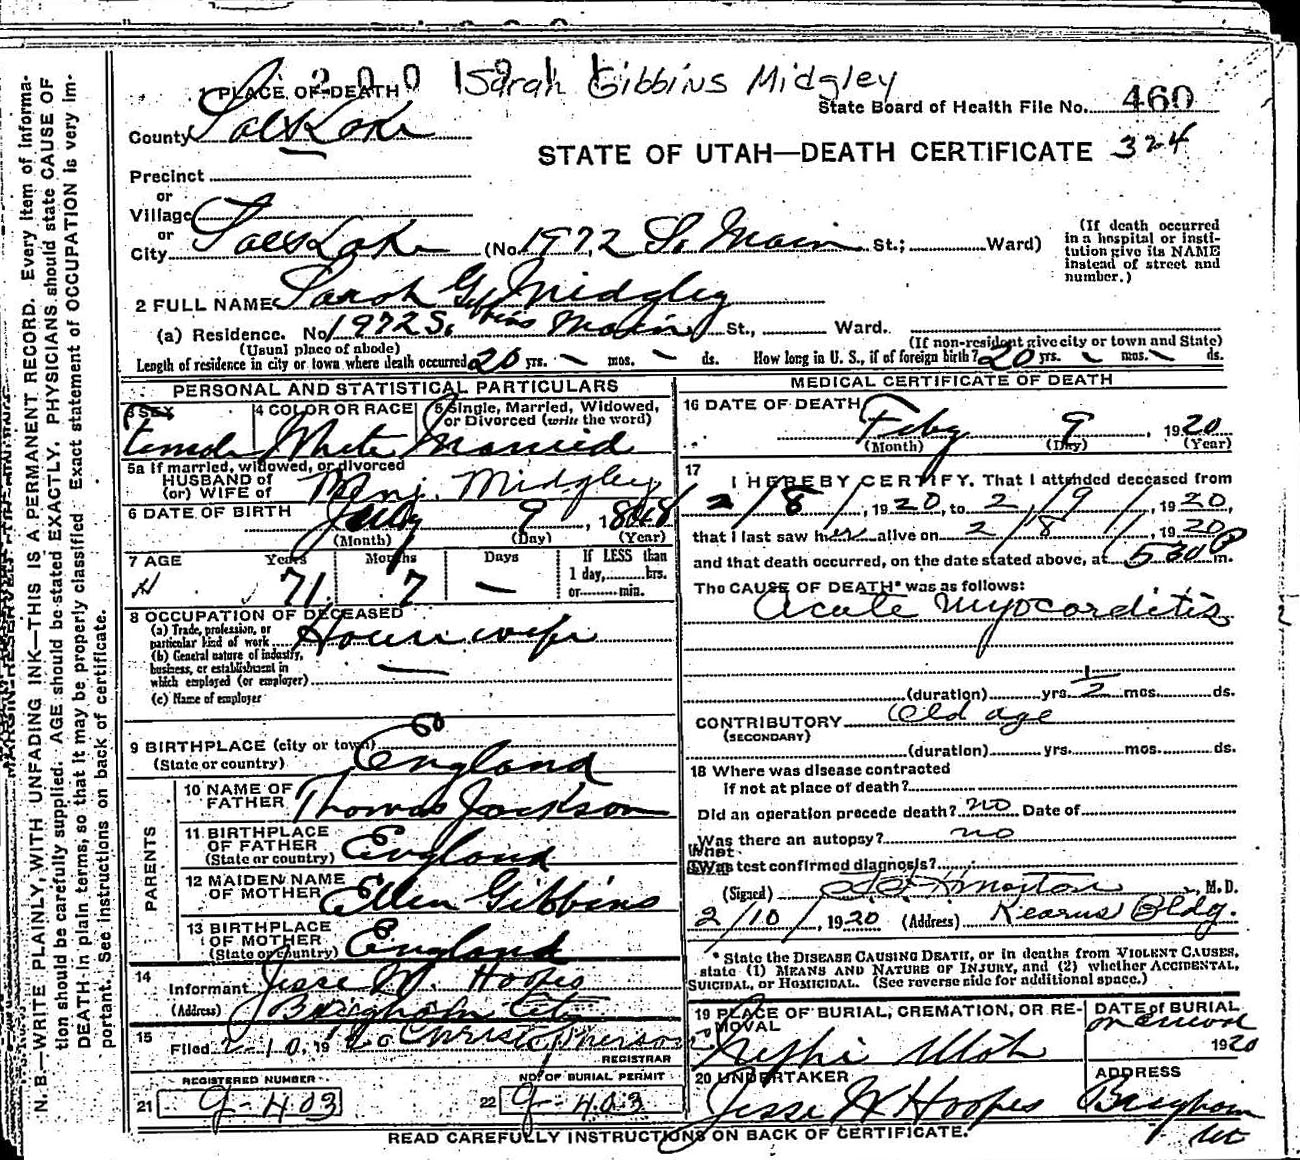 Sarah Gibbins Midgley
1 PLACE OF DEATH
State Board of Health File No. 460
County Salt Lake
STATE OF UTAH—DEATH CERTIFICATE 324
Precinct
or
Village
or
City Salt Lake (No. 1972 So Main St.; Ward)
(If death occurred
in a hospital or insti-
tution give its NAME
instead of street and
number.)
2 FULL NAME Sarah Gibbins Midgley
(a) Residence. No. 1972 S. Main St., Ward.
(Usual place of abode)
(If non-resident give city or town and State)
Length of residence in city or town where death occurred 20 yrs. – mos. – ds. How long in U. S., if of foreign birth? 20 yrs. – mos. – ds.
PERSONAL AND STATISTICAL PARTICULARS
3 SEX
Female
4 COLOR OR RACE
White
5 Single, Married, Widowed,
or Divorced (write the word)
Married
5a If married, widowed, or divorced
HUSBAND of
(or) WIFE of Benj. Midgley
6 DATE OF BIRTH July 9, 1848
(Month) (Day) (Year)
7 AGE Years Months Days If LESS than
1 day, hrs.
or min.
71 7 —
8 OCCUPATION OF DECEASED
(a) Trade, profession, or
particular kind of work House wife
(b) General nature of industry,
business, or establishment in
which employed (or employer) —
(c) Name of employer
60
9 BIRTHPLACE (city or town)
(State or country) England
PARENTS
10 NAME OF
FATHER Thomas Jackson
11 BIRTHPLACE
OF FATHER
(State or country) England
12 MAIDEN NAME
OF MOTHER Ellen Gibbins
13 BIRTHPLACE
OF MOTHER
(State or country) England
14
Informant Jesse W. Hoopes
(Address) Brigham City
15
Filed 2-10, 19
REGISTRAR
REGISTERED NUMBER
21 g-403
NO. OF BURIAL PERMIT
22 g-403
MEDICAL CERTIFICATE OF DEATH
16 DATE OF DEATH
Feby 9, 1920
(Month) (Day) (Year)
17
I HEREBY CERTIFY, That I attended deceased from
2/8/, 1920, to 2/9/, 1920,
that I last saw her alive on 2/8/, 1920
and that death occurred, on the date stated above, at 530 P m.
The CAUSE OF DEATH* was as follows:
Acute Myocarditis
(duration) yrs. 1/2 mos. ds.
CONTRIBUTORY Old age
(SECONDARY)
(duration) yrs. mos. ds.
18 Where was disease contracted
if not at place of death?
Did an operation precede death? no Date of
Was there an autopsy? no
What
test confirmed diagnosis?
(Signed) , M. D.
2/10/, 1920 (Address) Kearns Bldg.
* State the DISEASE CAUSING DEATH, or in deaths from VIOLENT CAUSES,
state (1) MEANS AND NATURE OF INJURY, and (2) whether ACCIDENTAL,
SUICIDAL, or HOMICIDAL. (See reverse side for additional space.)
19 PLACE OF BURIAL, CREMATION, OR RE-
MOVAL
Nephi Utah
DATE of BURIAL
on arrival
1920
20 UNDERTAKER
Jesse W Hoopes
ADDRESS
Brigham
Ut
READ CAREFULLY INSTRUCTIONS ON BACK OF CERTIFICATE.
N. B.—WRITE PLAINLY, WITH UNFADING INK—THIS IS A PERMANENT RECORD. Every item of informa-
tion should be carefully supplied. AGE should be stated EXACTLY. PHYSICIANS should state CAUSE OF
DEATH in plain terms, so that it may be properly classified. Exact statement of OCCUPATION is very im-
portant. See instructions on back of certificate.